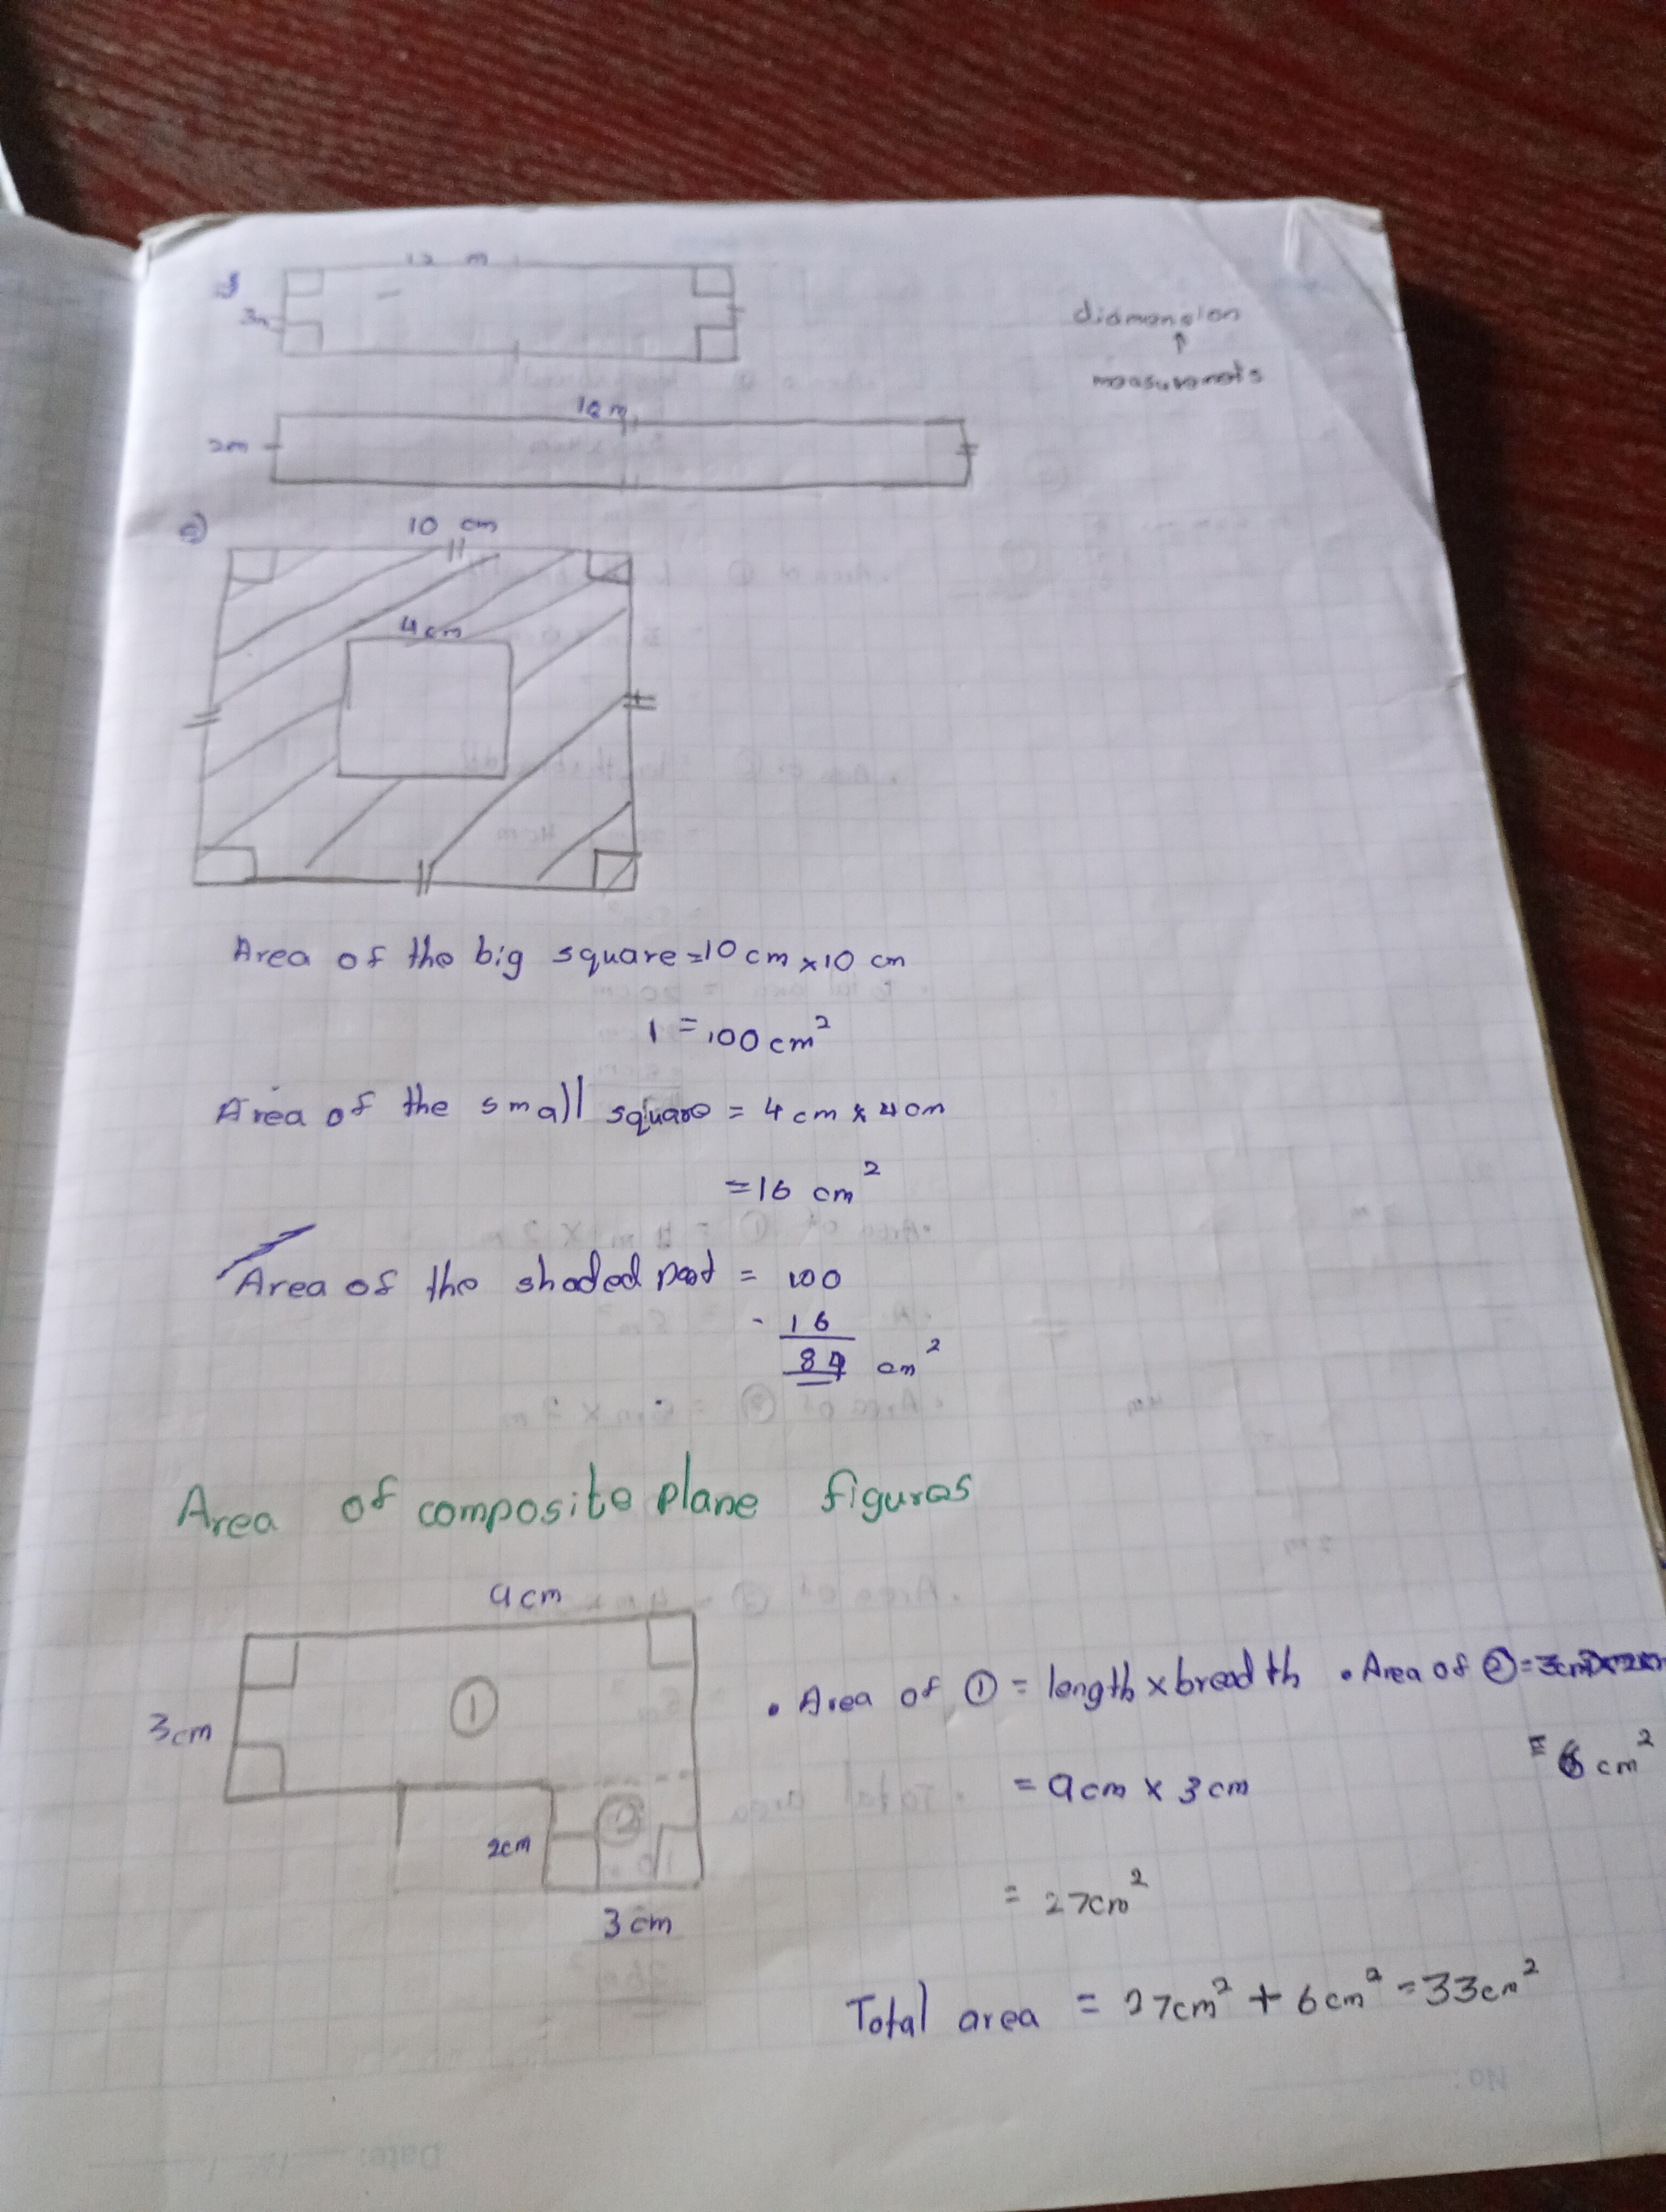 12 m
3m
diamension
↑
measurements
18m
2m
e)
10 cm
4cm
Area of the big square=10cm×10 cm
1 = 100cm²
Area of the small square = 4cm × 4cm
=16 cm²
Area of the shaded part = 100
- 16
84 cm²
Area of composite plane figures
9cm
① 
3cm
• Area of ① = length×breadth • Area of ②=3cm×2cm
= 9cm × 3cm = 6cm²
②
2cm
= 27cm²
3cm
Total area = 27cm² + 6cm² = 33cm²